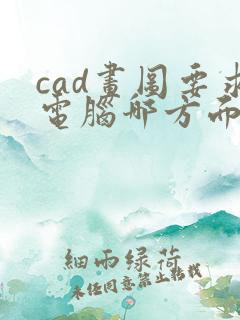 cad畫圖要求
電腦哪方面
細雨綠荷
未经同意禁止转载